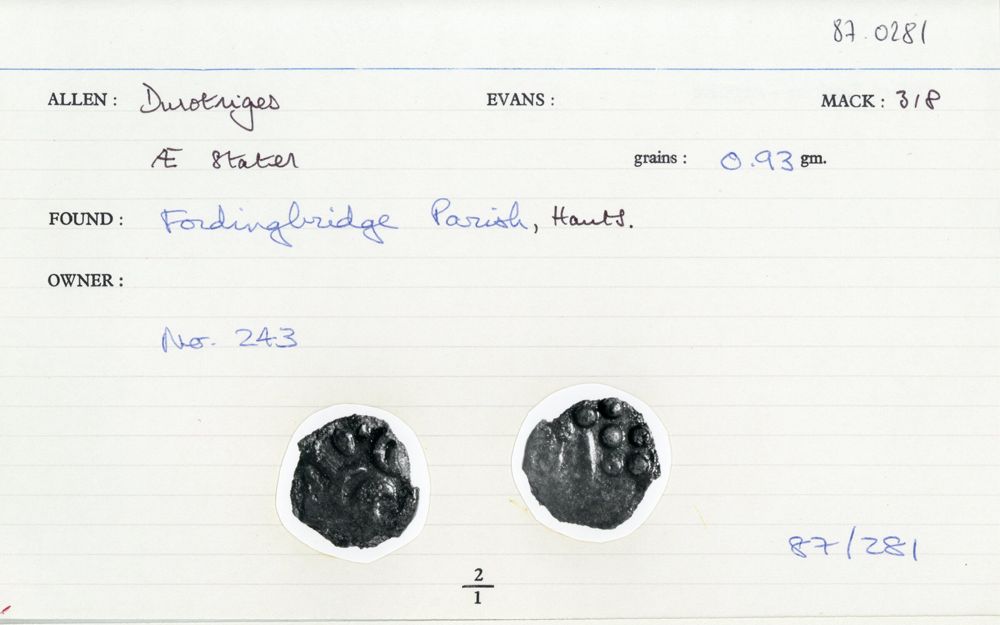 87.0281
ALLEN : Durotriges EVANS : MACK : 318
Æ Stater grains : 0.93 gm.
FOUND : Fordingbridge Parish, Hants.
OWNER :
No. 243
87/281
2
1